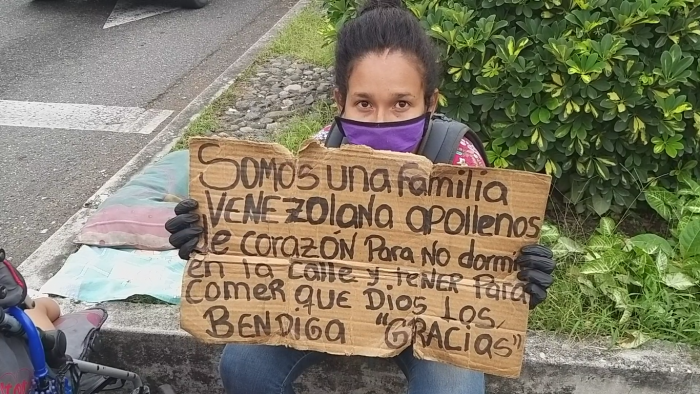 SOMOS una familia
VENEZOLANA apollenos
de corazón Para no dormir
en la calle y tener Para
comer que Dios los
BENDIGA "GRACIAS"